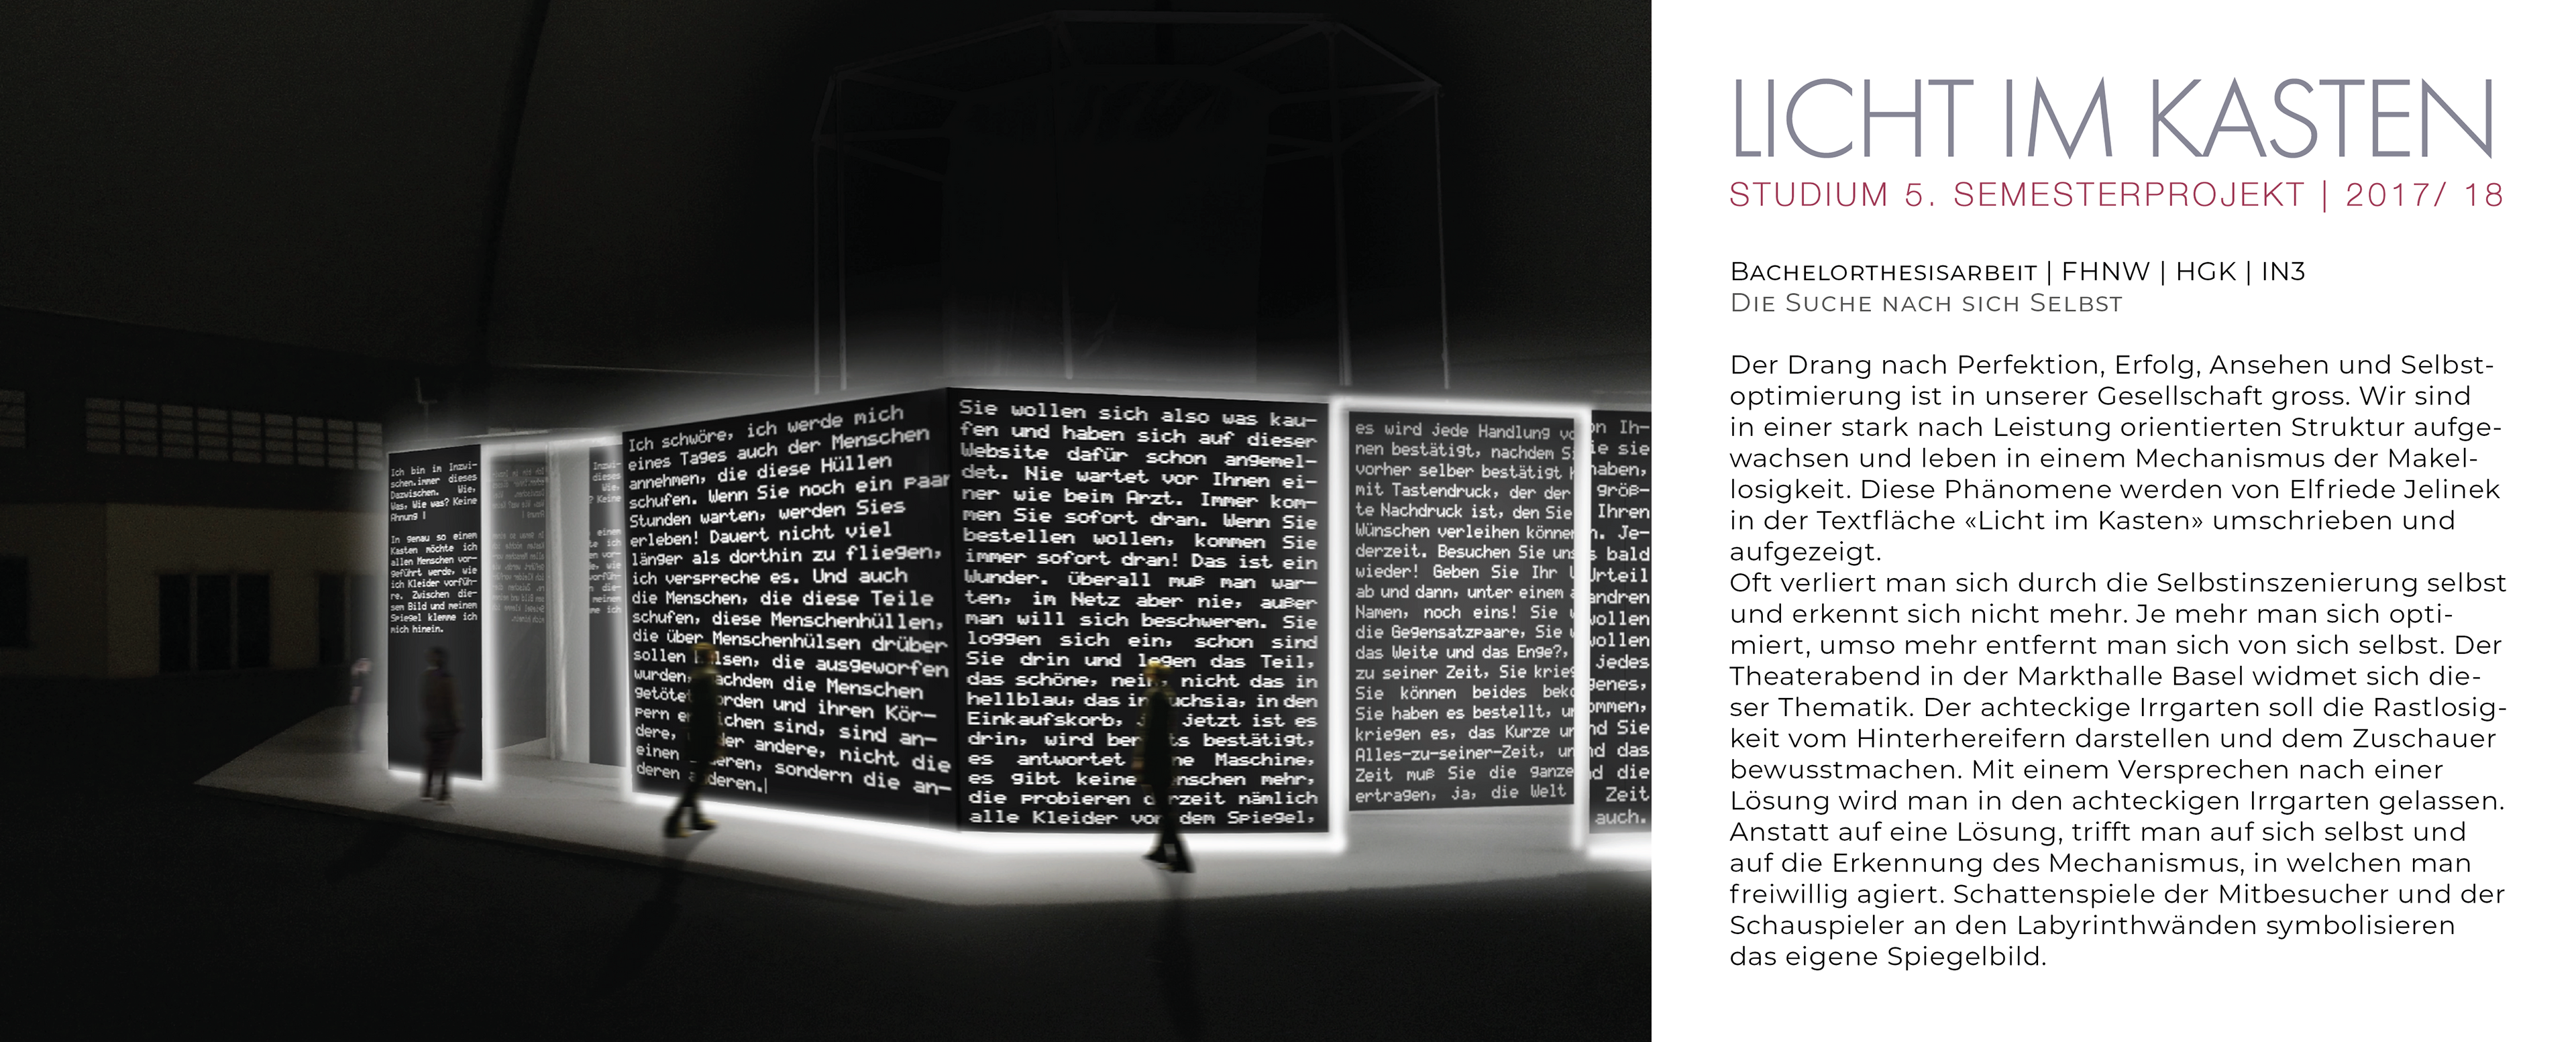 Ich bin im Inzwi-
schen.immer dieses
Dazwischen. Wie,
Was, Wie was? Keine
Ahnung |
In genau so einem
Kasten möchte ich
allen Menschen vor-
geführt werde, wie
ich Kleider vorfüh-
re. Zwischen die-
sem Bild und meinem
Spiegel klemme ich
mich hinein.
Inzwi-
dieses
Wie,
? Keine
einem
ich
vor-
wie
vorfüh-
die-
meinem
ich
Ich schwöre, ich werde mich
eines Tages auch der Menschen
annehmen, die diese Hüllen
schufen. Wenn Sie noch ein paar
Stunden warten, werden Sies
erleben! Dauert nicht viel
länger als dorthin zu fliegen,
ich verspreche es. Und auch
die Menschen, die diese Teile
schufen, diese Menschenhüllen,
die über Menschenhülsen drüber
sollen lsen, die ausgeworfen
wurden, achdem die Menschen
getötet orden und ihren Kör-
pern e ichen sind, sind an-
dere, der andere, nicht die
einen eren, sondern die an-
deren deren.|
Sie wollen sich also was kau-
fen und haben sich auf dieser
Website dafür schon angemel-
det. Nie wartet vor Ihnen ei-
ner wie beim Arzt. Immer kom-
men Sie sofort dran. Wenn Sie
bestellen wollen, kommen Sie
immer sofort dran! Das ist ein
Wunder. Überall muß man war-
ten, im Netz aber nie, außer
man will sich beschweren. Sie
loggen sich ein, schon sind
Sie drin und legen das Teil,
das schöne, nein, nicht das in
hellblau, das in uchsia, in den
Einkaufskorb, jetzt ist es
drin, wird ber ts bestätigt,
es antwortet ne Maschine,
es gibt keine nschen mehr,
die probieren d rzeit nämlich
alle Kleider vor dem Spiegel,
es wird jede Handlung vo
nen bestätigt, nachdem S
vorher selber bestätigt h
mit Tastendruck, der der
te Nachdruck ist, den Sie
Wünschen verleihen können
derzeit. Besuchen Sie uns
wieder! Geben Sie Ihr U
ab und dann, unter einem a
Namen, noch eins! Sie
die Gegensatzpaare, Sie w
das Weite und das Enge?,
zu seiner Zeit, Sie krieg
Sie können beides beko
Sie haben es bestellt, un
kriegen es, das Kurze un
Alles-zu-seiner-Zeit, un
Zeit muß Sie die ganze
ertragen, ja, die Welt
on Ih-
ie sie
haben,
größ-
Ihren
n. Je-
s bald
Urteil
andren
wollen
wollen
jedes
genes,
ommen,
nd Sie
nd das
nd die
Zeit
auch.
LICHT IM KASTEN
STUDIUM 5. SEMESTERPROJEKT | 2017/ 18
BACHELORTHESISARBEIT | FHNW | HGK | IN3
DIE SUCHE NACH SICH SELBST
Der Drang nach Perfektion, Erfolg, Ansehen und Selbst-
optimierung ist in unserer Gesellschaft gross. Wir sind
in einer stark nach Leistung orientierten Struktur aufge-
wachsen und leben in einem Mechanismus der Makel-
losigkeit. Diese Phänomene werden von Elfriede Jelinek
in der Textfläche «Licht im Kasten» umschrieben und
aufgezeigt.
Oft verliert man sich durch die Selbstinszenierung selbst
und erkennt sich nicht mehr. Je mehr man sich opti-
miert, umso mehr entfernt man sich von sich selbst. Der
Theaterabend in der Markthalle Basel widmet sich die-
ser Thematik. Der achteckige Irrgarten soll die Rastlosig-
keit vom Hinterhereifern darstellen und dem Zuschauer
bewusstmachen. Mit einem Versprechen nach einer
Lösung wird man in den achteckigen Irrgarten gelassen.
Anstatt auf eine Lösung, trifft man auf sich selbst und
auf die Erkennung des Mechanismus, in welchen man
freiwillig agiert. Schattenspiele der Mitbesucher und der
Schauspieler an den Labyrinthwänden symbolisieren
das eigene Spiegelbild.